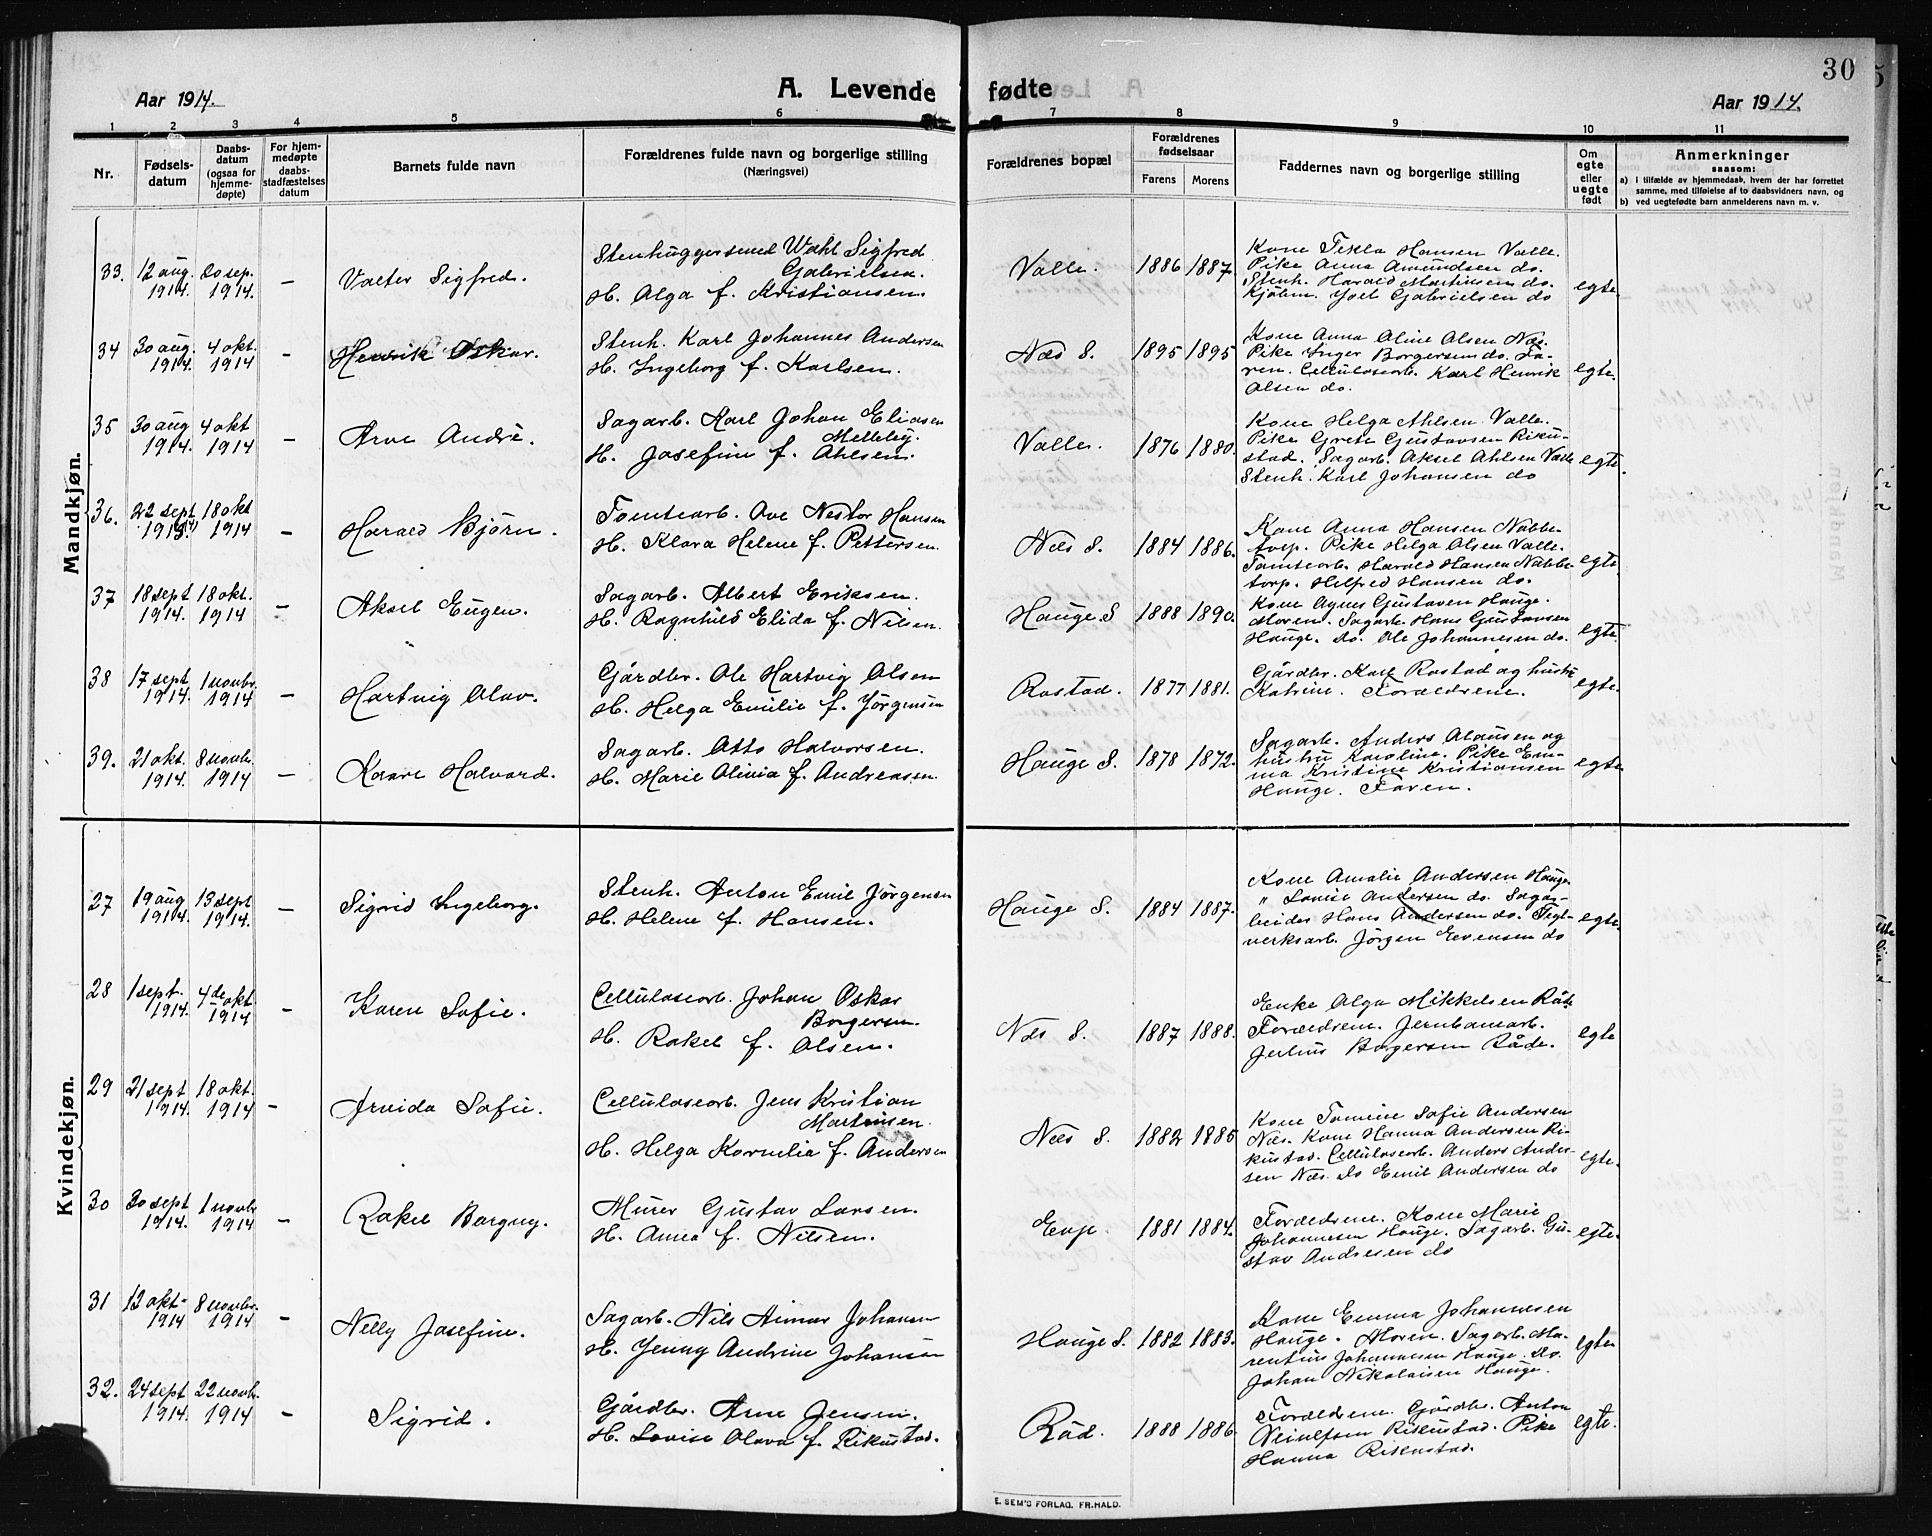 30
Aar 1914.
A. Levende fødte
Aar 1914.
1 2 3 4 5 6 7 8 9 10 11
Nr.
Fødsels-
datum
Daabs-
datum
(ogsaa for
hjemme-
døpte)
For hjem-
medøpte
daabs-
stadfæstelses
datum
Barnets fulde navn
Forældrenes fulde navn og borgerlige stilling
(Næringsvei)
Forældrenes bopæl
Forældrenes
fødselsaar
Farens Morens
Faddernes navn og borgerlige stilling
Om
egte
eller
uegte
født
Anmerkninger
saasom:
a) i tilfælde av hjemmedaab, hvem der har forrettet
samme, med tilføielse af to daabsvidners navn, og
b) ved uegtefødte barn anmelderens navn m. v.
Mandkjøn.
33. 12 aug. 1914. 20 sep. 1914. –
Valter Sigfred.
Stenhuggersvend Sigfred
Gabrielsen.
H. Alga f. Kristiansen.
Valle. 1886 1887.
Kone Tekla Hansen Valle.
Pike Anna Amundsen do.
Stenh. Harald Martinsen do.
Kjøbm. Joel Gabrielsen do
egte.
34 30 aug. 1914. 4 okt. 1914 –
Henrik Oskar.
Stenh. Karl Johannes Andersen
H. Ingeborg f. Karlsen.
Næs S. 1895 1895
Kone Anna Oline Olsen Næs.
Pike Inger Borgersen do. Fa-
ren. Cellulosearb. Karl Henrik
Olsen do.
egte.
35 30 aug 1914. 4 okt 1914 –
Arne André.
Sagarb. Karl Johan Eliasen
Melleby.
H. Josefine f. Ahlsen.
Valle. 1876 1880.
Kone Helga Ahlsen Valle.
Pike Grete Gustavsen Riku-
stad. Sagarb. Aksel Ahlsen Valle
Stenh. Karl Johansen do
egte.
36. 22 sept 1914 18 okt 1914 –
Harald Bjørn.
Tomtearb. Ove Nestor Hansen
H. Klara Helene f. Pettersen.
Næs S. 1884 1886.
Kone Anna Hansen Nabbe-
torp. Pike Helga Olsen Valle.
Tomtearb. Harald Hansen Nabbe-
torp. Helfred Hansen do.
egte.
37 18 sept 1914. 18 okt. 1914 –
Aksel Eugen.
Sagarb. Albert Eriksen.
H. Ragnhild Elida f. Nilsen.
Hauge S 1888 1890.
Kone Agnes Gustavsen Hauge.
Moren. Sagarb. Hans Gustavsen
Hauge. Do. Ole Johannesen do.
egte.
38 17 sept 1914. 1 novbr. 1914 –
Hartvig Olav.
Gårdbr. Ole Hartvig Olsen
H. Helga Emilie f. Jørgensen
Rostad. 1877 1881.
Gårdbr. Karl Rostad og hustru
Katrine. Forældrene.
egte.
39. 21 okt. 1914. 8 novbr. 1914 –
Kaare Halvard.
Sagarb. Otto Halvorsen.
H. Marie Olivia f. Andreasen.
Hauge S. 1878 1872.
Sagarb. Anders Olausen og
hustru Karoline. Pike Em-
ma Kristine Kristiansen
Hauge. Faren.
egte
Kvindekjøn.
27 19 aug 1914. 13 sept 1914. –
Sigrid Ingeborg.
Stenh. Anton Emil Jørgensen
H. Helene f. Hansen.
Hauge S. 1884 1887.
Kone Amalie Andersen Hauge.
" Lovise Andersen do. Sagar-
beider Hans Andersen do. Tegl-
verksarb. Jørgen Evensen do
egte.
28 1 sept. 1914. 4de okt. 1914 –
Karen Sofie.
Cellulosearb. Johan Oskar
Borgersen.
H. Rakel f. Olsen.
Næs S. 1887 1888.
Enke Olga Mikkelsen Råde
Forældrene. Jernbanearb.
Julius Borgersen Råde.
egte
29 21 sept 1914. 18 okt. 1914 –
Arvida Sofie.
Cellulosearb. Jens Kristian
Martinsen.
H. Helga Kornelia f. Andersen
Næs S. 1882 1885
Kone Tomine Sofie Andersen
Næs. Kone Hanna Andersen Ri-
kustad. Cellulosearb. Anders Ander-
sen Næs. Do Emil Andersen do
egte.
30 30 sept 1914. 1 novbr 1914 –
Rakel Borgny.
Murer Gustav Larsen.
H. Anna f. Nilsen.
1881 1884.
Forældrene. Kone Marie
Johannesen Hauge. Sagarb. Gu-
stav Andresen do
egte.
31 13 okt. 1914 8 novbr. 1914 –
Nelly Josefine.
Sagarb. Nils Aimar Johansen
H. Jenny Andrine Johansen
Hauge S. 1882 1883.
Kone Emma Johannesen
Hauge. Moren. Sagarb. Ma-
rentius Johannesen Hauge. do.
Johan Nikolaisen Hauge.
egte
32. 24 sept 1914. 22 novbr. 1914 –
Sigrid.
Gårdbr. Arne Jensen.
H. Lovise Olava f. Rikustad.
Råd. 1888 1886
Forældrene. Gårdbr. Anton
Rikustad. Pike
Hanna Rikustad.
egte.
E. SEM'S FORLAG, FR.HALD.